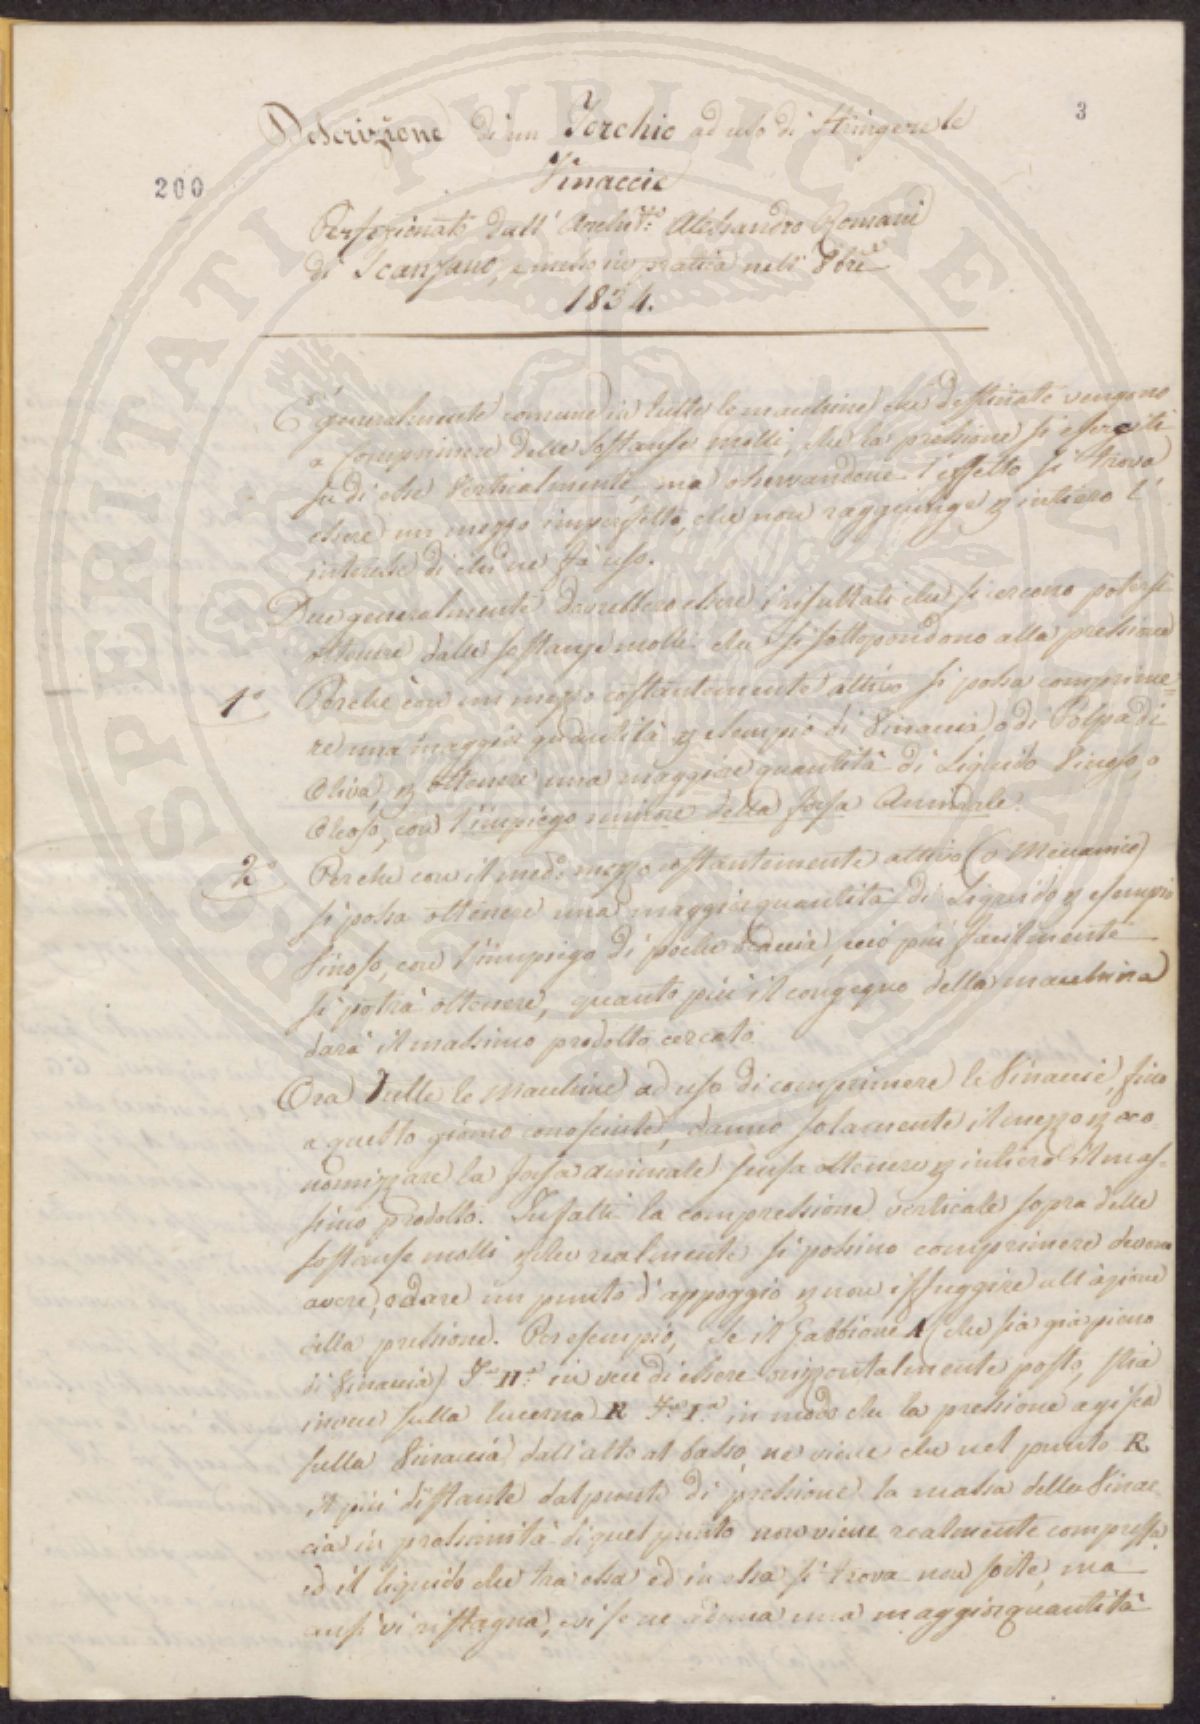 3
Descrizione di un Torchio ad uso di stringere le
200
Vinaccie
Perfezionato dall' Archit.to Alessandro Romani
di Scanzano, e messo in pratica nell' 8bre
1834.
È generalmente comune in tutte le macchine che destinate vengono
a comprimere delle sostanse molli, che la pressione si eserciti
su di esse verticalmente, ma osservandone l'effetto si trova
essere un mezzo imperfetto, che non raggiunge p intiero l'
interesse di chi ne fà uso.
Due generalmente dovrebbero essere i risultati che si cercono potersi
ottenere dalle sostanze molli che si sottopondono alla pressione
1° Perchè con un mezzo costantemente attivo si possa comprime=
re una maggior quantità p esempio di Vinaccia, o di Polpa di
Oliva, p ottenere una maggiore quantità di Liquido Vinoso, o
Oleoso, con l'impiego minore della forsa Animale.
2° Perchè con il med.o mezzo costantemente attivo (o Meccanico)
si possa ottenere una maggior quantità di Liquido p esempio
Vinoso, con l'impiego di poche braccia, ciò più facilmente
si potrà ottenere, quanto più il congegno della macchina
darà il massimo prodotto cercato.
Ora tutte le Macchine ad uso di comprimere le Vinaccie, fino
a questo giorno conosciute, danno solamente il mezzo p eco-
nomizzare la forsa animale, sensa ottenere p intiero il mas-
simo prodotto. Infatti la compressione verticale sopra delle
sostanse molli p che realmente si possino comprimere devono
avere, o dare un punto d'appoggio p non isfuggire all'azione
della pressione. Per esempio, se il Gabbione A (che sia già pieno
di Vinaccia) F.a II.a in vece di essere orizzontalmente posto, stia
invece sulla lucerna R F.a I.a in modo che la pressione agisca
sulla Vinaccia dall'alto al basso, ne viene che nel punto R
il più distante dal punto di pressione la massa della Vinac-
cia in prossimità di quel punto non viene realmente compressa,
ed il liquido che tra essa ed in essa si trova non sorte, ma
ansi vi ristagna, e vi se ne aduna una maggior quantità